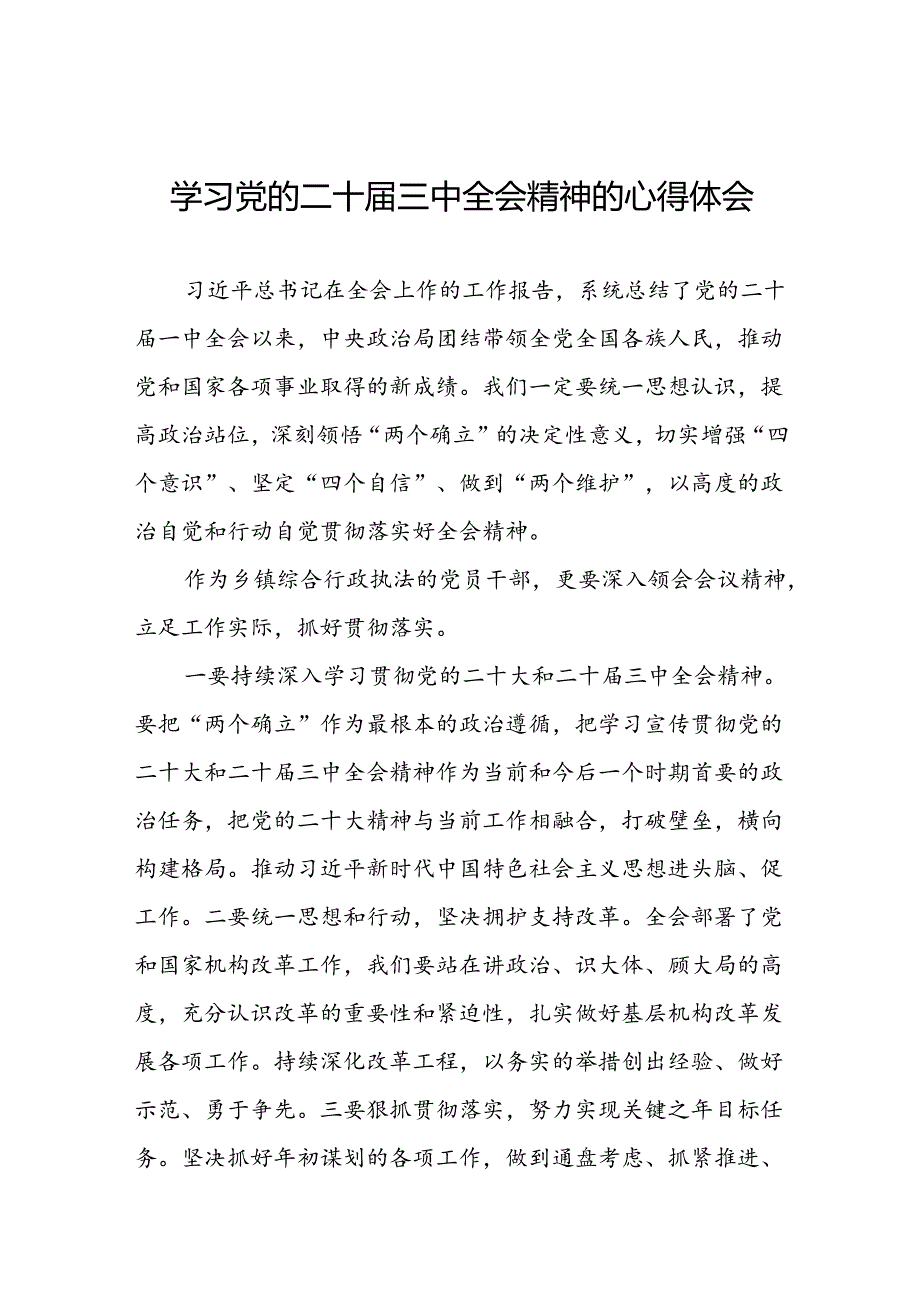 学习党的二十届三中全会精神的心得体会
习近平总书记在全会上作的工作报告，系统总结了党的二十
届一中全会以来，中央政治局团结带领全党全国各族人民，推动
党和国家各项事业取得的新成绩。我们一定要统一思想认识，提
高政治站位，深刻领悟“两个确立”的决定性意义，切实增强“四
个意识”、坚定“四个自信”、做到“两个维护”，以高度的政
治自觉和行动自觉贯彻落实好全会精神。
作为乡镇综合行政执法的党员干部，更要深入领会会议精神，
立足工作实际，抓好贯彻落实。
一要持续深入学习贯彻党的二十大和二十届三中全会精神。
要把“两个确立”作为最根本的政治遵循，把学习宣传贯彻党的
二十大和二十届三中全会精神作为当前和今后一个时期首要的政
治任务，把党的二十大精神与当前工作相融合，打破壁垒，横向
构建格局。推动习近平新时代中国特色社会主义思想进头脑、促
工作。二要统一思想和行动，坚决拥护支持改革。全会部署了党
和国家机构改革工作，我们要站在讲政治、识大体、顾大局的高
度，充分认识改革的重要性和紧迫性，扎实做好基层机构改革发
展各项工作。持续深化改革工程，以务实的举措创出经验、做好
示范、勇于争先。三要狠抓贯彻落实，努力实现关键之年目标任
务。坚决抓好年初谋划的各项工作，做到通盘考虑、抓紧推进、